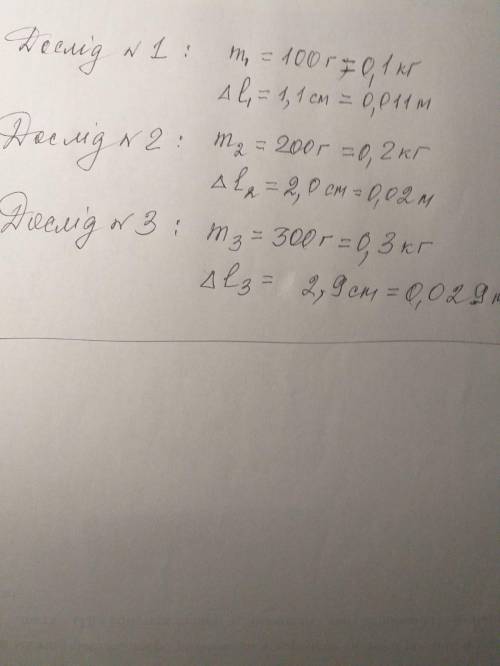 Дослід №1 : m₁ = 100г = 0,1кг
Δl₁ = 1,1см = 0,011м
Дослід №2 : m₂ = 200г = 0,2кг
Δl₂ = 2,0см = 0,02м
Дослід №3 : m₃ = 300г = 0,3кг
Δl₃ = 2,9см = 0,029м